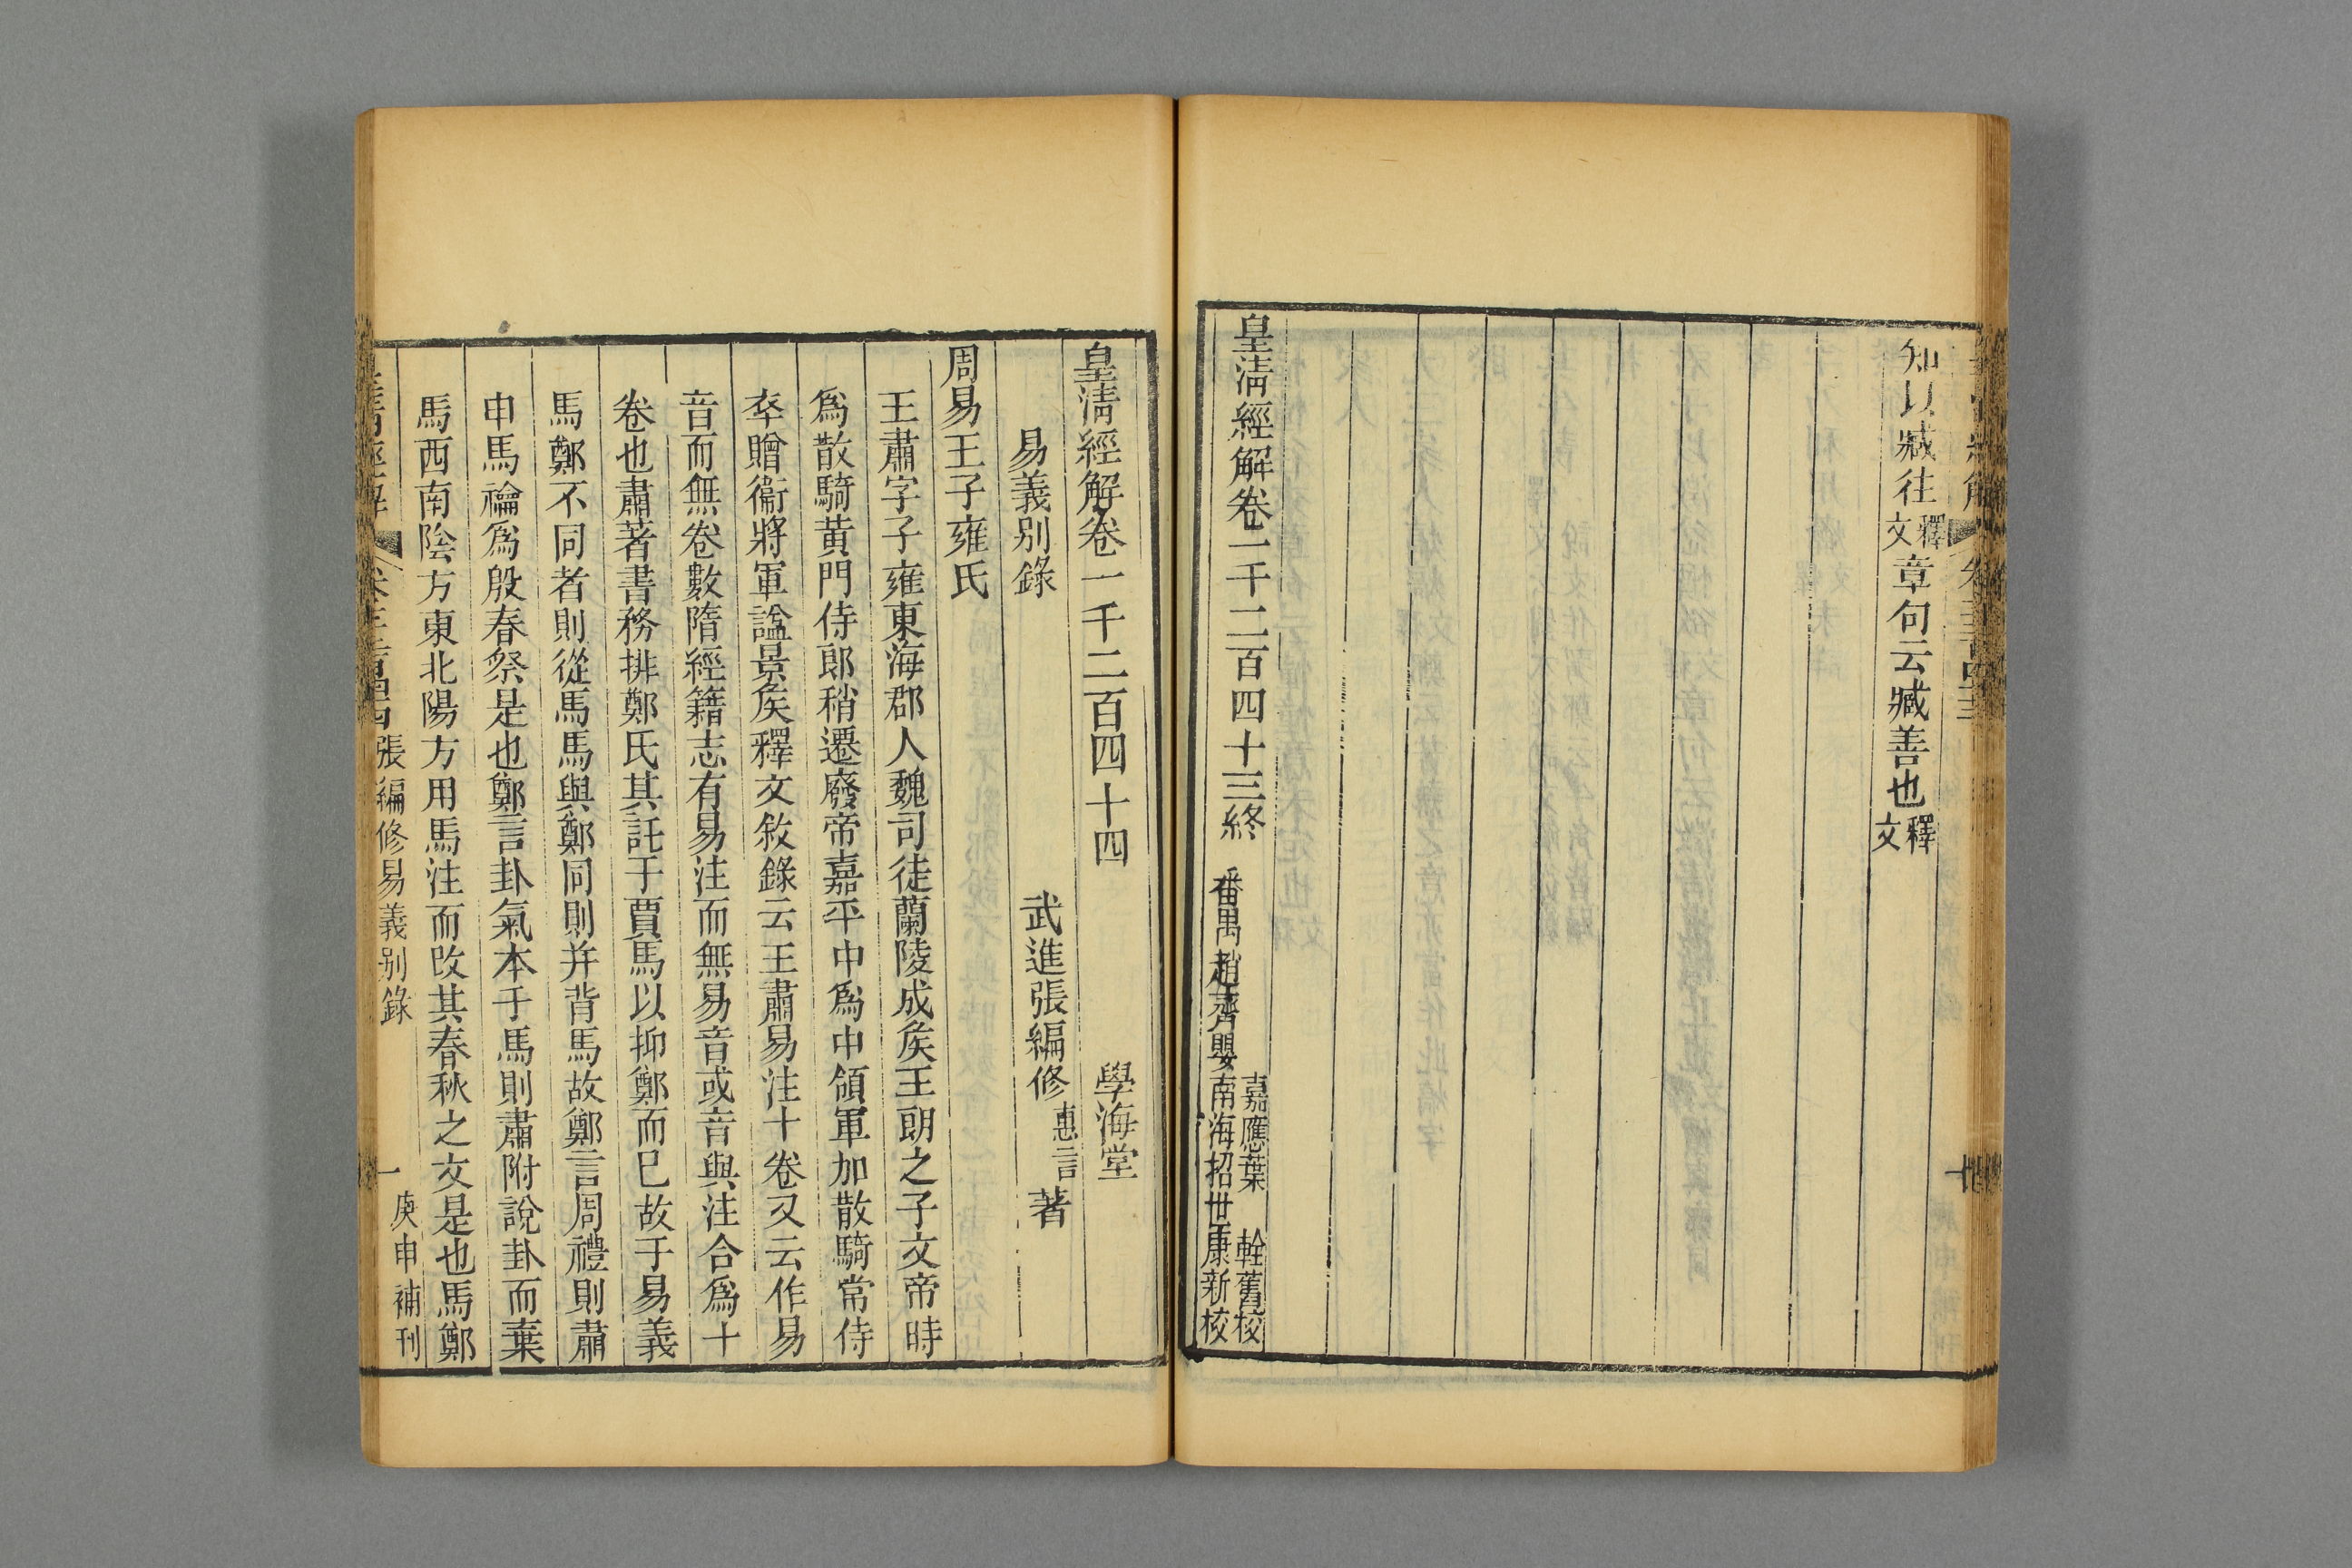 知以臧往釋文章句云臧善也釋文
皇淸經解卷一千二百四十三終
番禺趙齊嬰
嘉應葉 輇舊校
南海招世康新校
皇淸經解卷一千二百四十四 學海堂
易義別錄 武進張編修惠言著
周易王子雍氏
王肅字子雍東海郡人魏司徒蘭陵成矦王朗之子文帝時
爲散騎黃門侍郎稍遷廢帝嘉平中爲中領軍加散騎常侍
卒贈衞將軍諡景矦釋文敘錄云王肅易注十卷又云作易
音而無卷數隋經籍志有易注而無易音或音與注合爲十
卷也肅著書務排鄭氏其託于賈馬以抑鄭而已故于易義
馬鄭不同者則從馬馬與鄭同則并背馬故鄭言周禮則肅
申馬禴爲殷春祭是也鄭言卦氣本于馬則肅附說卦而棄
馬西南陰方東北陽方用馬注而改其春秋之文是也馬鄭
張編修易義別錄 一 庚申補刊